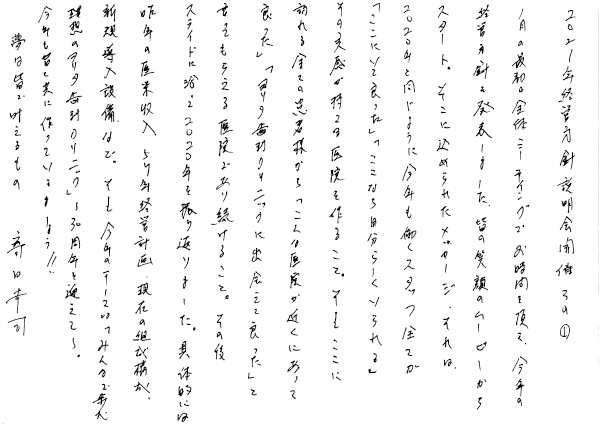 2021年経営方針説明会開催 その①
1月の最初の全体ミーティングでお時間を頂き、今年の
経営方針を発表しました。皆の笑顔のムービーから
スタート。そこに込められたメッセージ、それは、
2020年と同じように今年も働くスタッフ全てが
「ここにいて良かった」「ここなら自分らしくいられる」
その実感が持てる医院を作ること。そしてここに
訪れる全ての患者様から「こんな医院が近くにあって
良かった」「ヨリタ歯科クリニックに出会えて良かった」と
言ってもらえる医院であり続けること。その後
スライドに沿って2020年を振り返りました。具体的には
昨年の医業収入、5ヶ年経営計画、現在の組織構成、
新規導入設備など。そして今年のテーマは「みんなで歩む
理想のヨリタ歯科クリニック」~30周年を迎えて~。
今年も皆と共に作っていきましょう!!
夢は皆で叶えるもの 寄田幸司